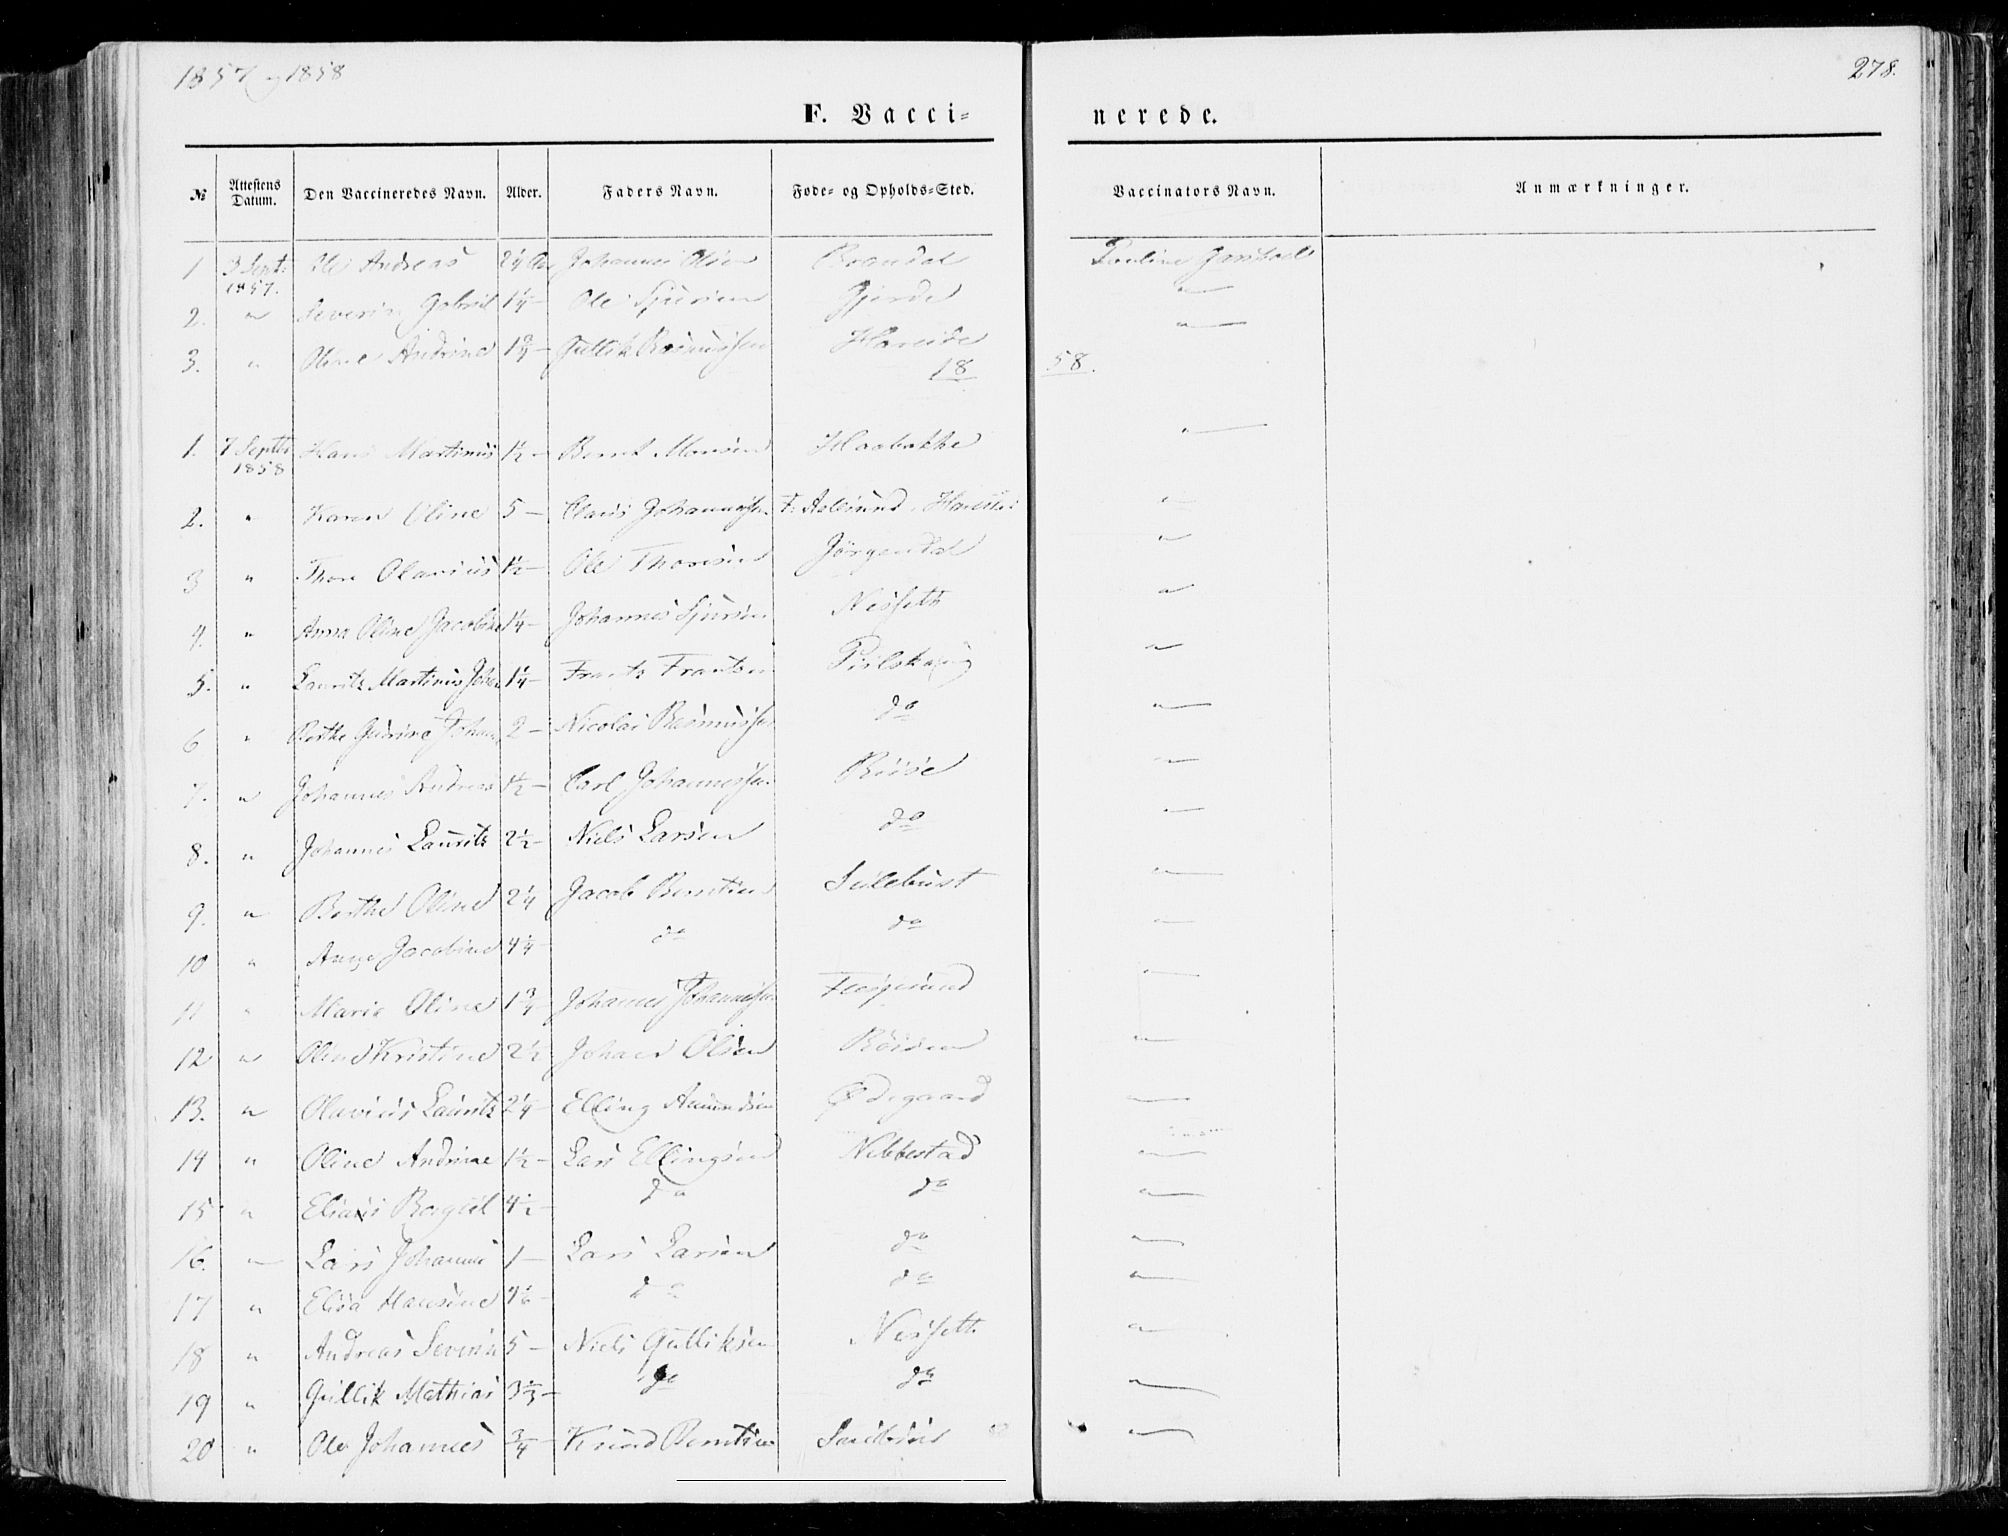 1857 og 1858
278.
F. Vacci=
nerede.
№ Attestens Datum. Den Vaccineredes Navn. Alder. Faders Navn. Føde- og Opholds-Sted. Vaccinators Navn. Anmærkninger.
1 3 Sept: 1857. Ole Andreas 2¼ Johannes Olsen Brandal Pauline
2. " Severin Gabriel 1¼ — Ole Sjursen Gjerde "
3. " Oline Andrine 1¾ — Gullik Rasmussen Hareide "
18 58.
1. 7 Septbr 1858 Hans Martinus 1½ — Bernt Monsen "
2. " Karen Oline 5 — Claus Johannessen F. Aalesund, "
3 " Thore Olarius 1½ — Ole Thoresen Jørgendal "
4. " Anna Oline Jacobine 1¼ — Johannes Sjursen Nesseth "
5. " Lauritz Martinus Johan 1¼ — Frants Frantsen Piilskoug "
6 " Berthe Gurine 2 — Nicolai Rasmussen do "
7. " Johannes Andreas 1½ — Carl Johannessen Riise "
8. " Johannes Lauritz 2½ — Niels Larsen do "
9. " Berthe Oline 2¼ Jacob Berntsen Sulebust "
10 " Anne Jacobine 4¼ — do do "
11 " Marie Oline 1¾ — Johannes Johannessen Fladsund "
12 " Oline Kristine 2½ Johan Olsen Røisen "
13. " Olavius Lauritz 2¼ — Elling Amundsen Ødegaard "
14 " Oline Andrine 1½ — Lars Ellingsen Nebbestad "
15 " Elias 4½ — do do "
16. " Lars Johannes 1 — Lars Larsen do "
17 " Elisa Hansine do do "
18 " Andreas Severin 5 — Niels Gulliksen Nesseth "
19 " Gullik Mathias 3⅓ — do do "
20 " Ole Johannes ¾ — Knud Berntsen "